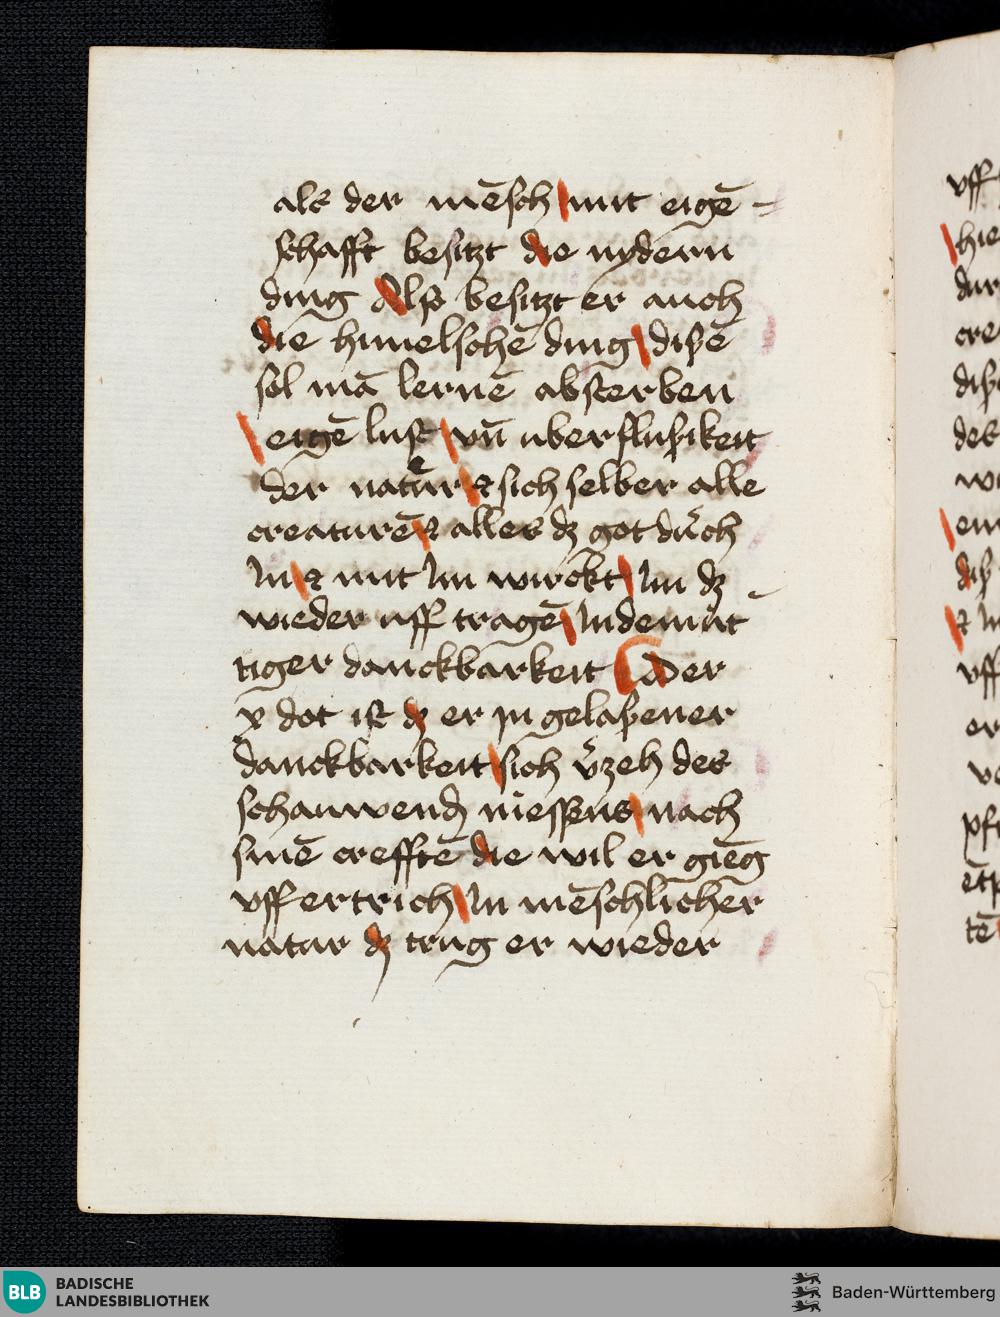 als der mēsch mit eigē -
schafft besitzt die nydern
ding Alß besitzt er auch
die himelschē ding disē
sol mā lernē absterben
eigē lust vn̄ uberflusikeit
der natůr ⁊ sich selber alle
creaturē ⁊ alles dz got durch
In ⁊ mit Im wirckt Im dz
wieder uff tragē In demüt
tiger danckbarkeit Der
v dot ist dz er jn gelaßener
danckbarkeit sich v̄zeh des
schauwend niessens nach
sinē crefftē die wil er gieg
vff ertrich In mēschlicher
natur dz trug er wieder
vff
hie
dur
cre
des
er
BLB BADISCHE
LANDESBIBLIOTHEK
Baden-Württemberg